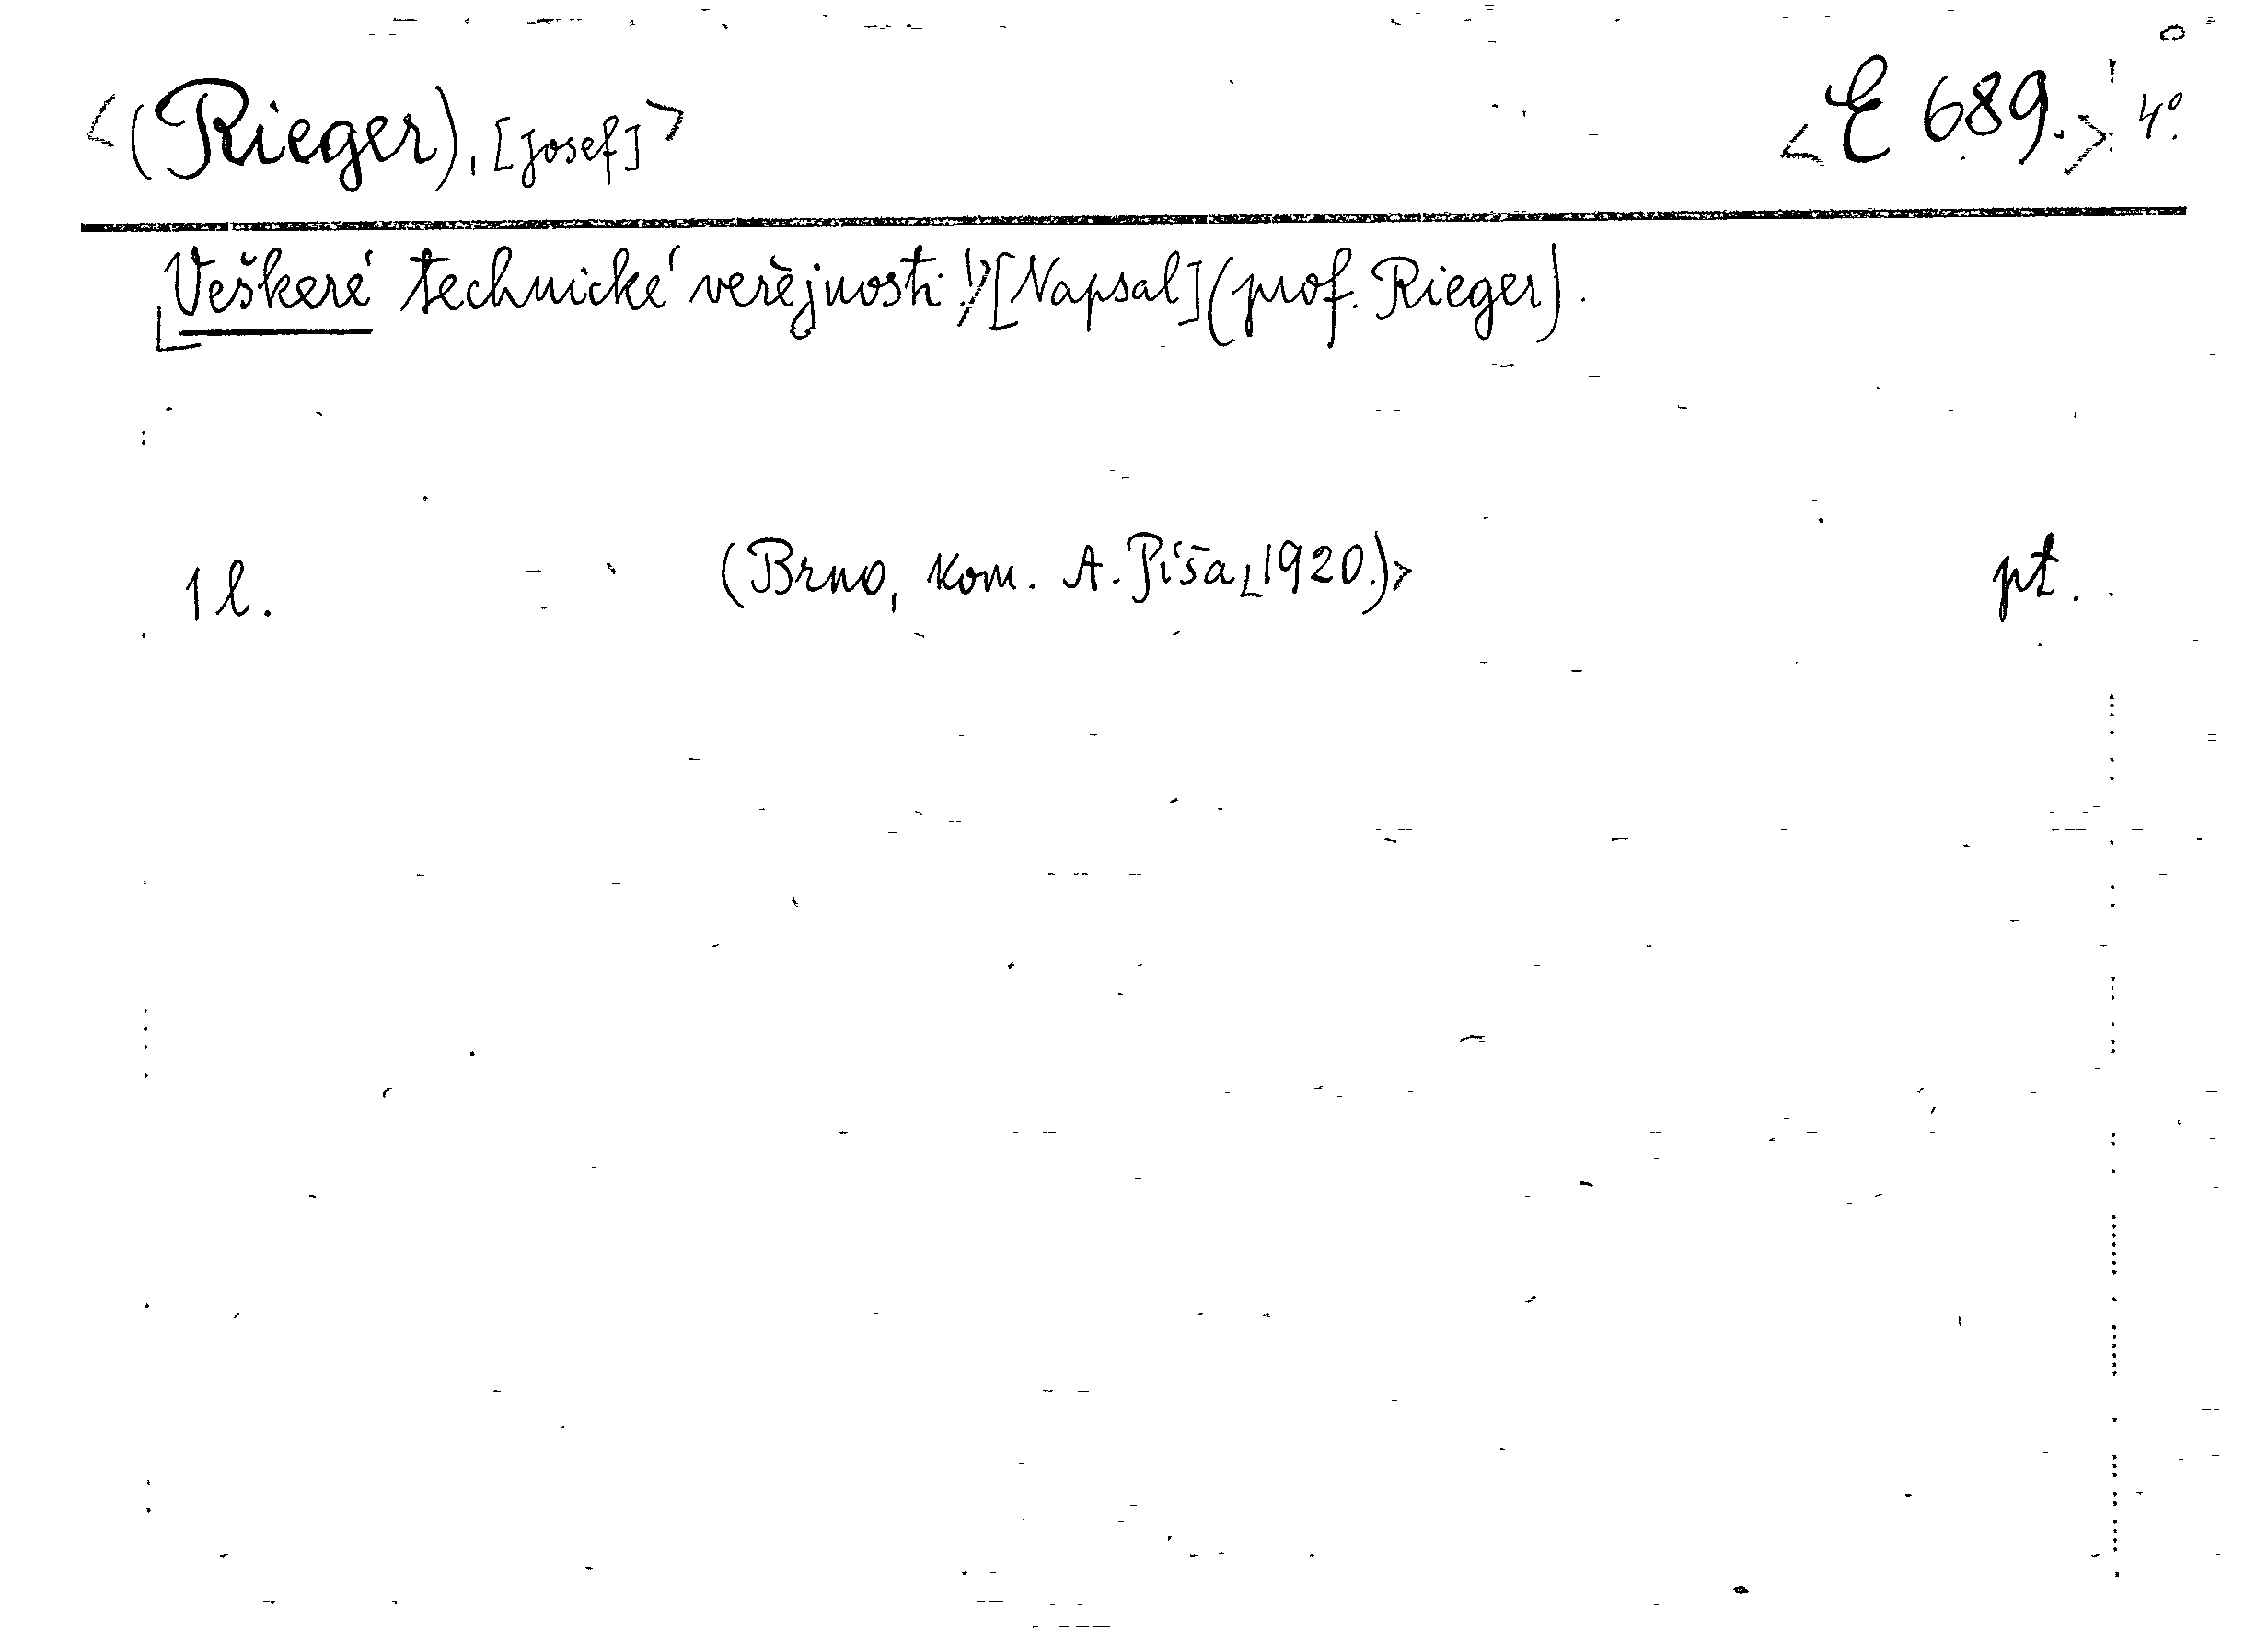 <(Rieger), [Josef]> <E 689.> 4°.
Veškeré technické veřejnosti!>[Napsal](prof. Rieger).
1 l. (Brno, kom. A. Píša, 1920.)> př.